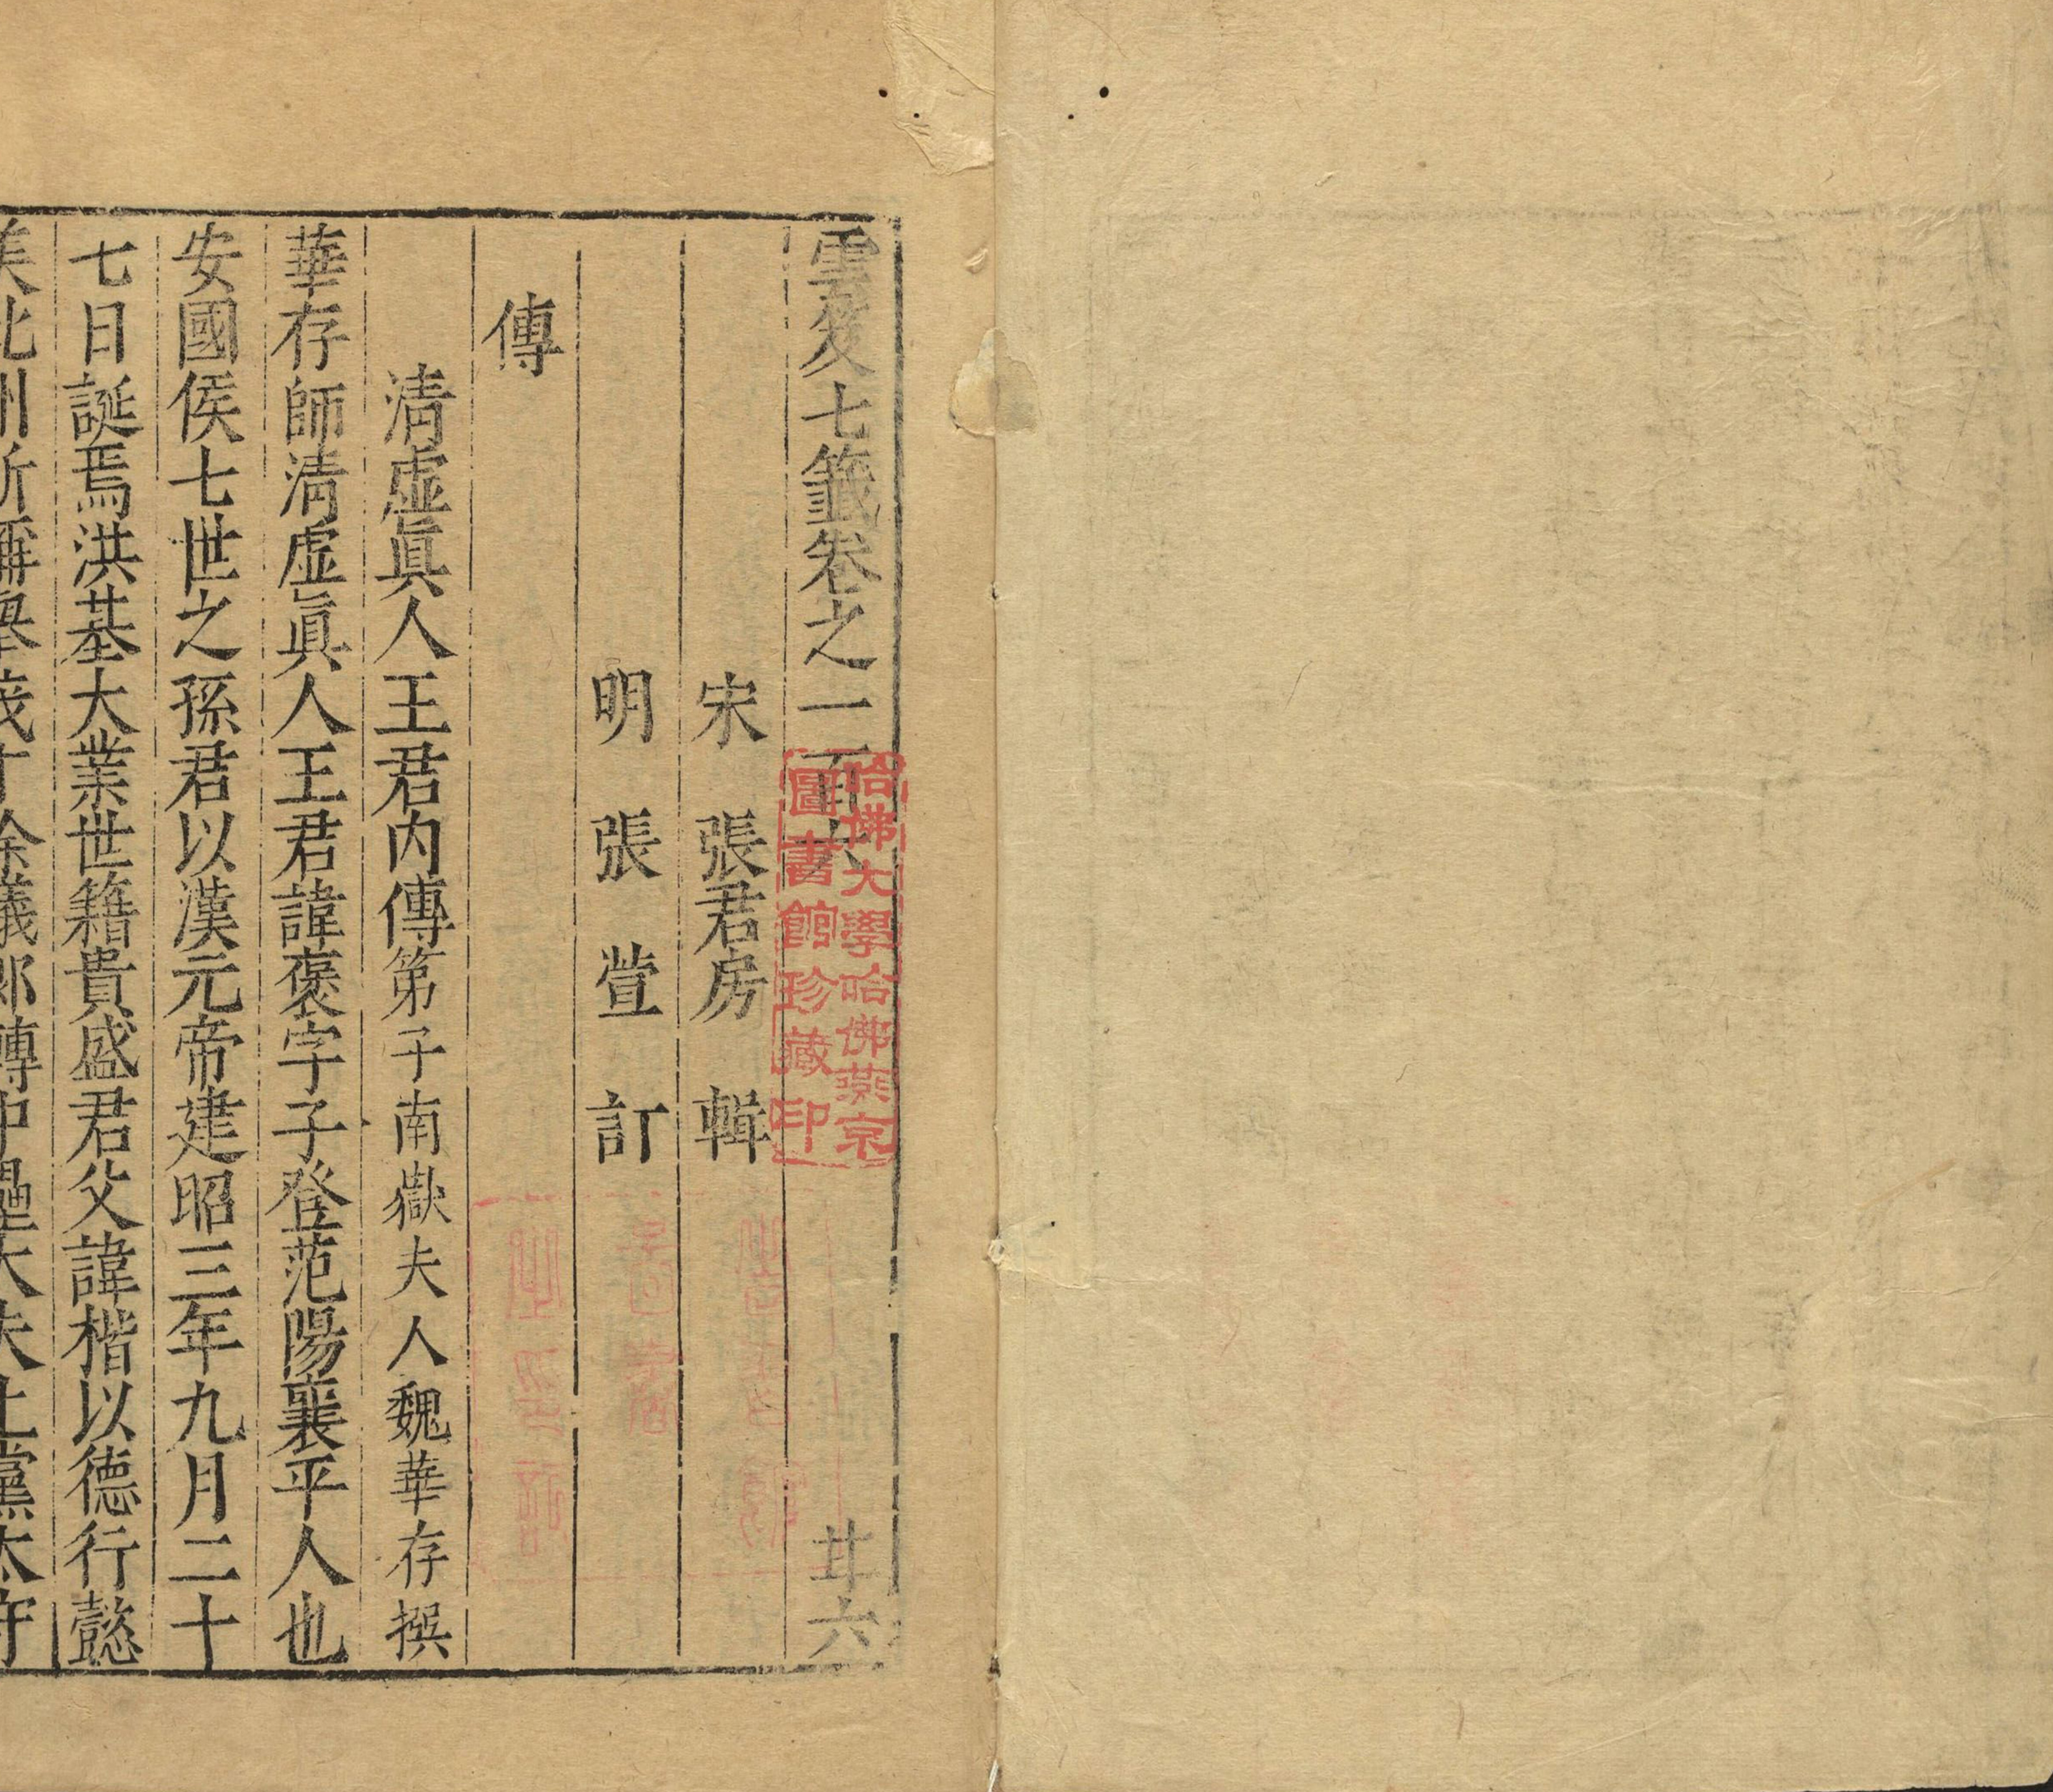 雲笈七籤卷之一百六 廿六
哈佛大學哈佛燕京
圖書館珍藏印
宋 張君房 輯
明 張 萱 訂
傳
清虛眞人王君内傳 第子南嶽夫人魏華存撰
華存師清虛眞人王君諱褒字子登范陽襄平人也
安國侯七世之孫君以漢元帝建昭三年九月二十
七日誕焉洪基大業世籍貴盛君父諱楷以德行懿
美北州所稱舉茂才除議郎轉中壘大夫上黨太守